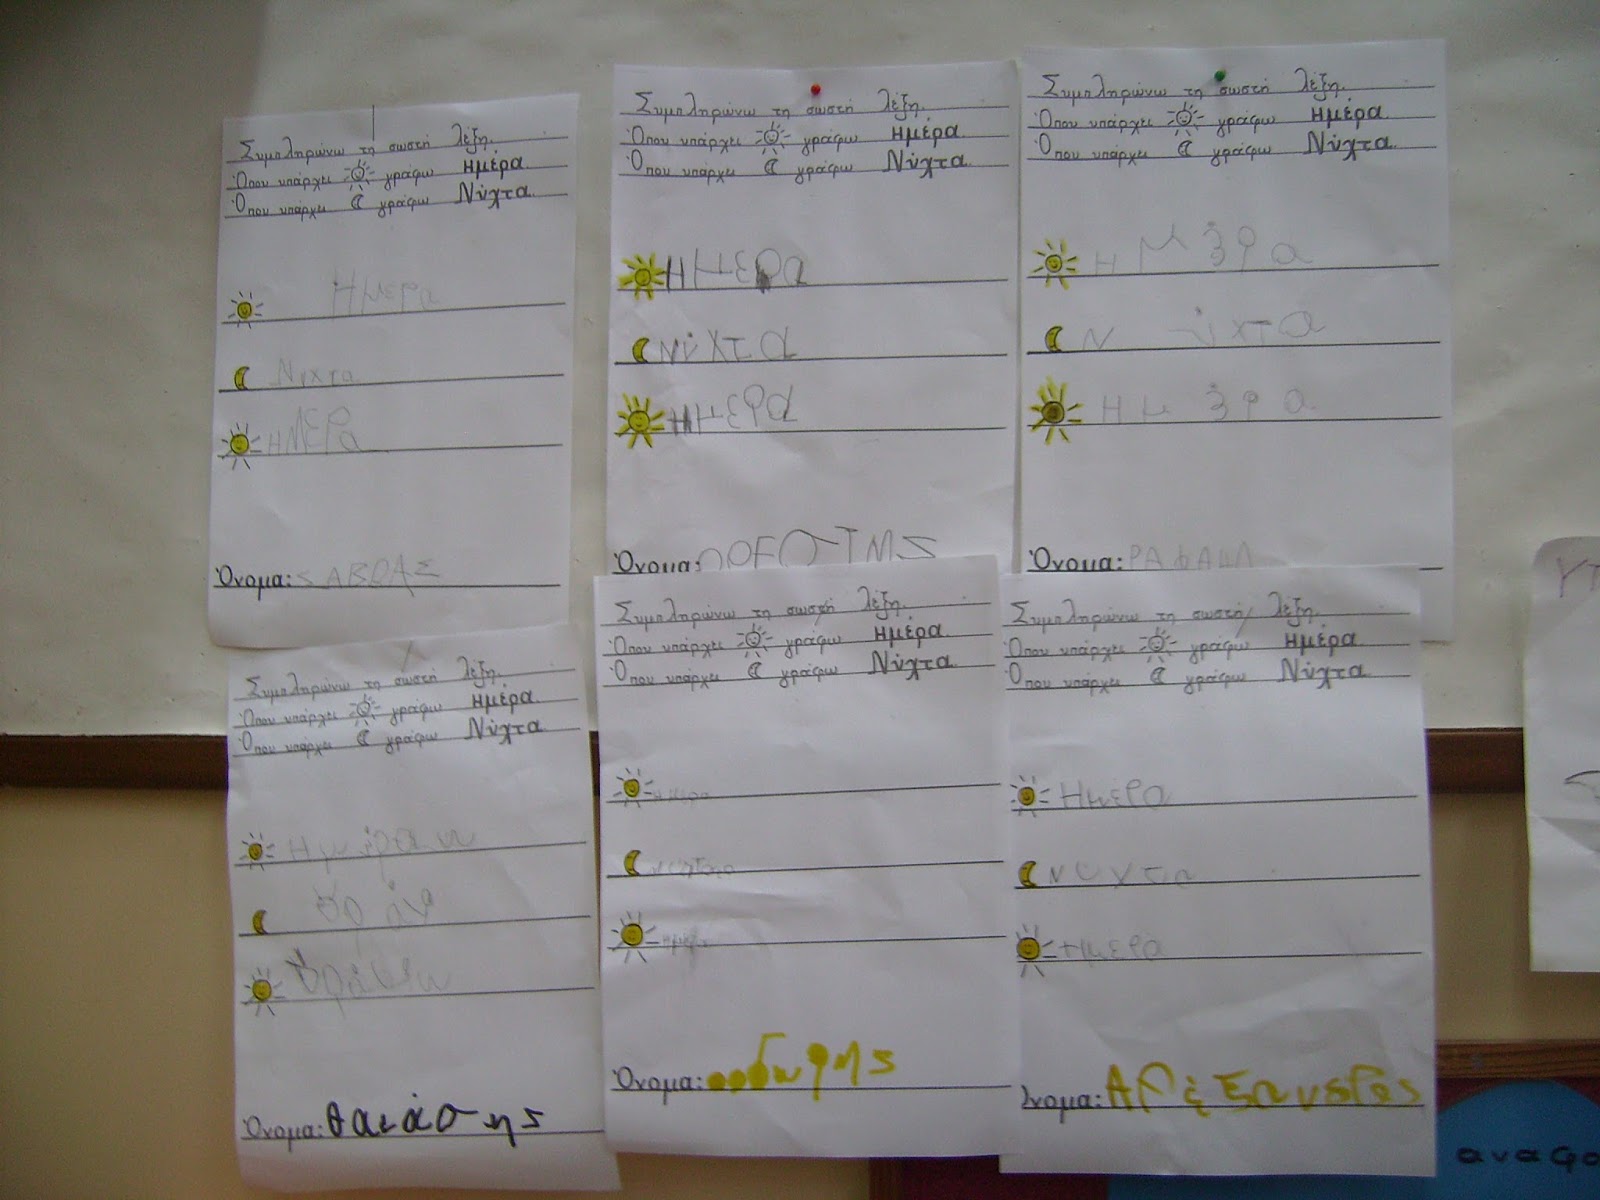 Συμπληρώνω τη σωστή λέξη.
Όπου υπάρχει γράφω Ημέρα
Όπου υπάρχει γράφω Νύχτα
Ημερα
Νυχτα
ΗΜΕΡα
Όνομα: SABBAΣ
Συμπληρώνω τη σωστή λέξη.
Όπου υπάρχει γράφω Ημέρα
Όπου υπάρχει γράφω Νύχτα
Ημερα
Νύχτα
Ημερα
Όνομα:
Συμπληρώνω τη σωστή λέξη.
Όπου υπάρχει γράφω Ημέρα
Όπου υπάρχει γράφω Νύχτα
Η μ έρα
Ν ύχτα
Η μ έ ρ α
Όνομα: ΡΑΦΑΗΛ
Συμπληρώνω τη σωστή λέξη.
Όπου υπάρχει γράφω Ημέρα
Όπου υπάρχει γράφω Νύχτα
Όνομα: θαιάσης
Συμπληρώνω τη σωστή λέξη.
Όπου υπάρχει γράφω Ημέρα
Όπου υπάρχει γράφω Νύχτα
Ημερα
Όνομα:
Συμπληρώνω τη σωστή λέξη.
Όπου υπάρχει γράφω Ημέρα
Όπου υπάρχει γράφω Νύχτα
Ημερα
Νυχτα
Ημερα
Όνομα: